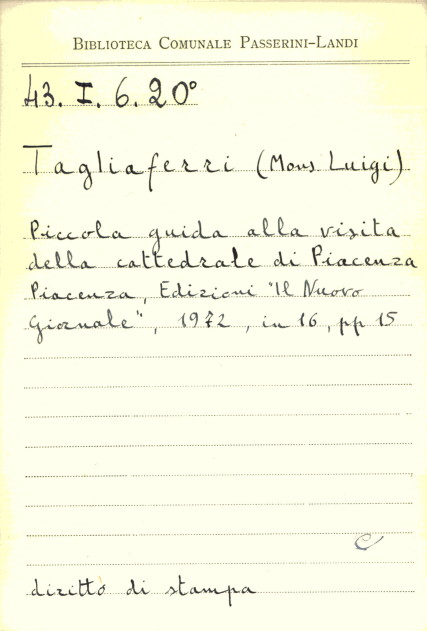 BIBLIOTECA COMUNALE PASSERINI-LANDI
43. I. 6. 20°
Tagliaferri (Mons Luigi)
Piccola guida alla visita
della cattedrale di Piacenza
Piacenza, Edizioni "Il Nuovo
Giornale", 1972, in 16, pp 15
C
diritto di stampa